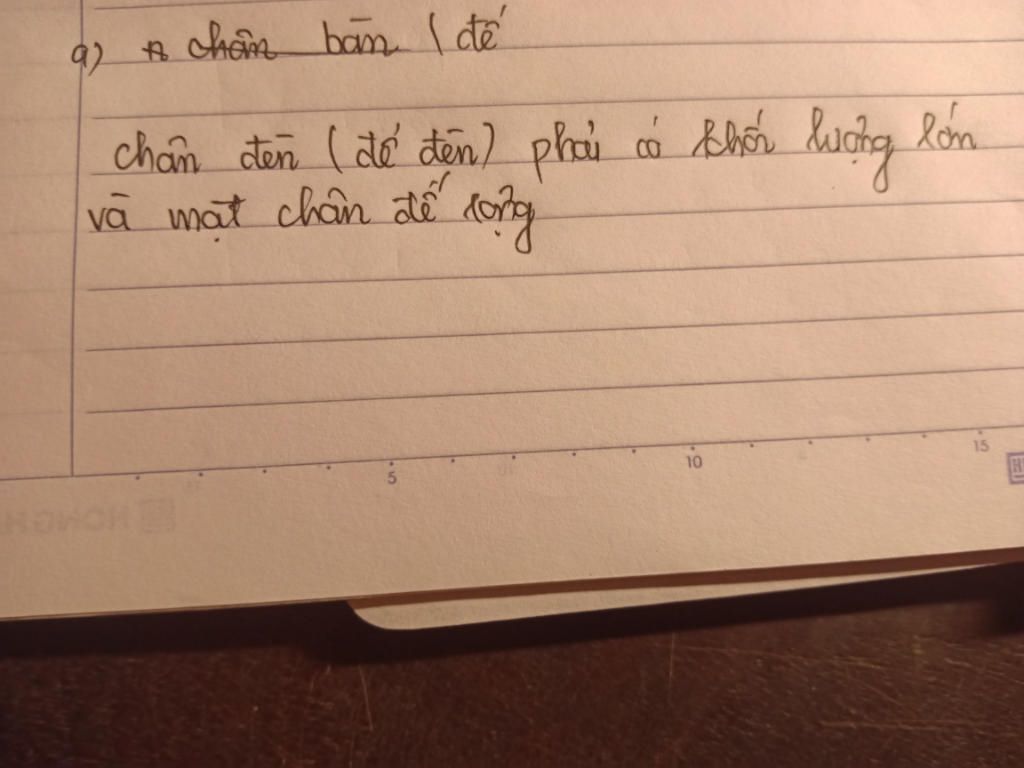 a) chân bàn (đế
chân đèn (đế đèn) phải có khối lượng lớn
và mặt chân đế rộng
5 10 15